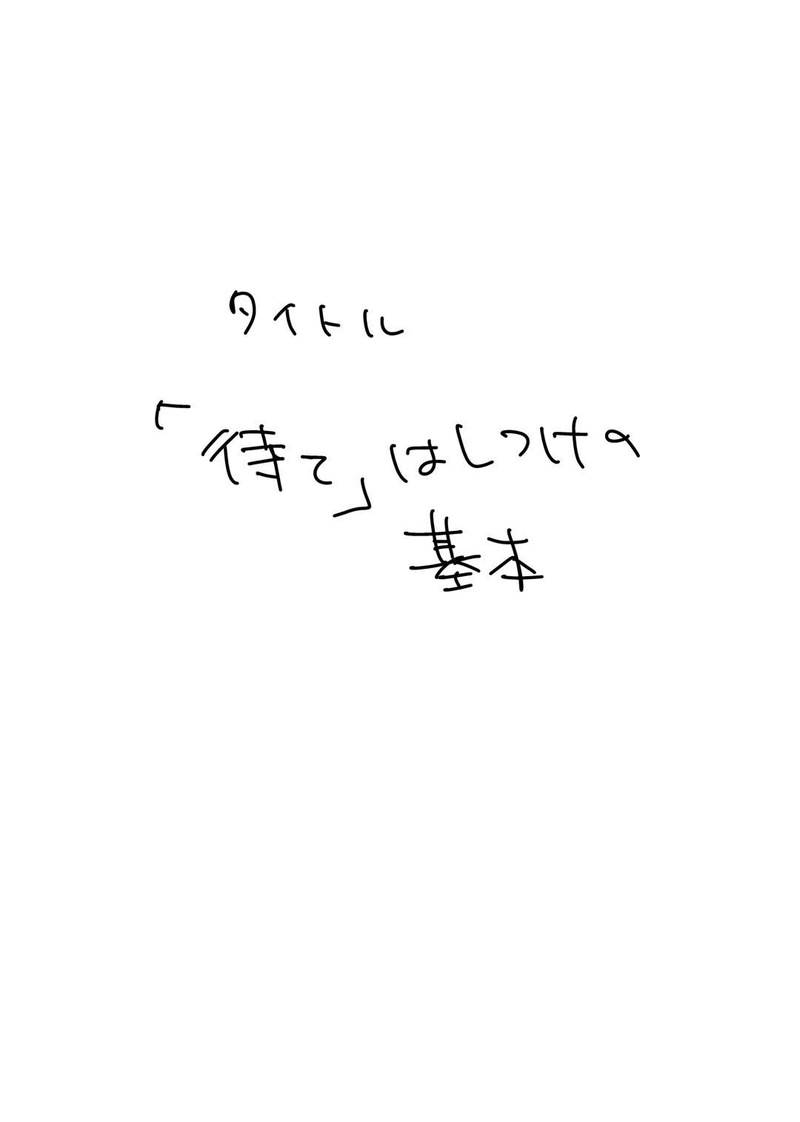 タイトル
「待て」はしつけの
基本